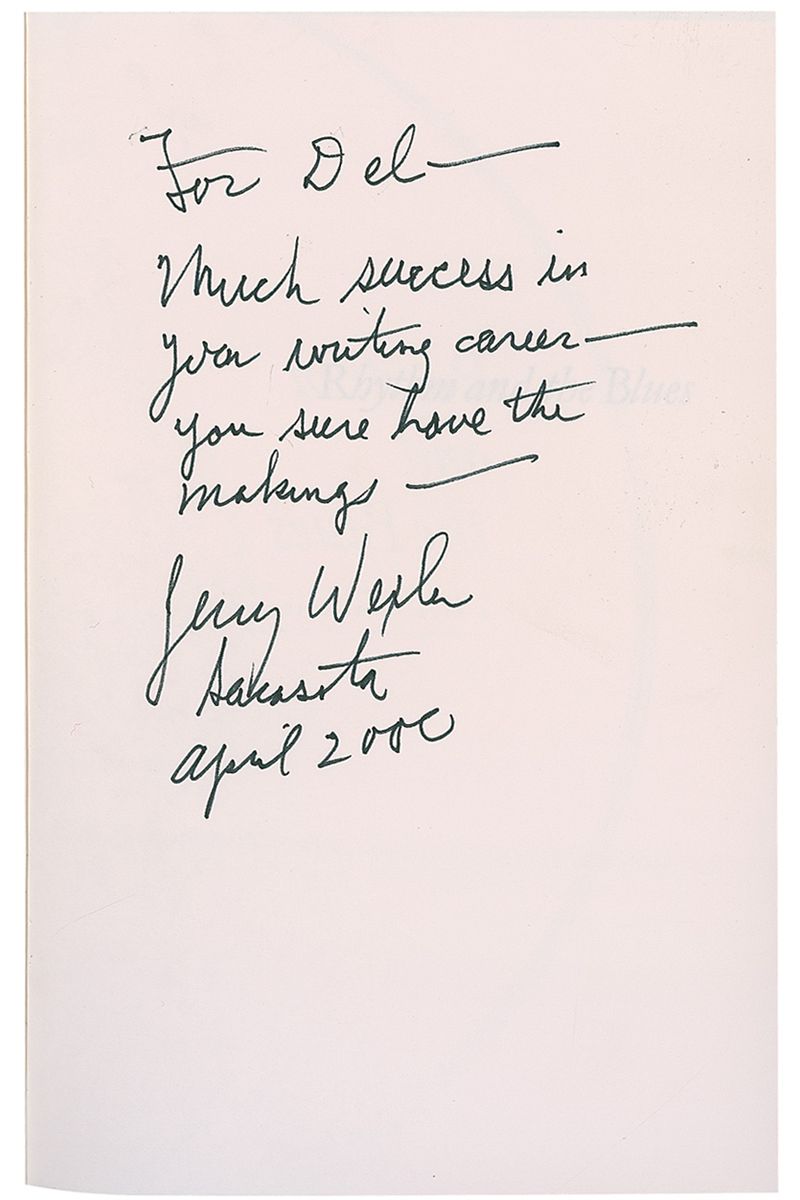 For Del—
Much success in
your writing career—
Rhythm and the Blues
you sure have the
makings —
Jerry Wexler
Sarasota
April 2000